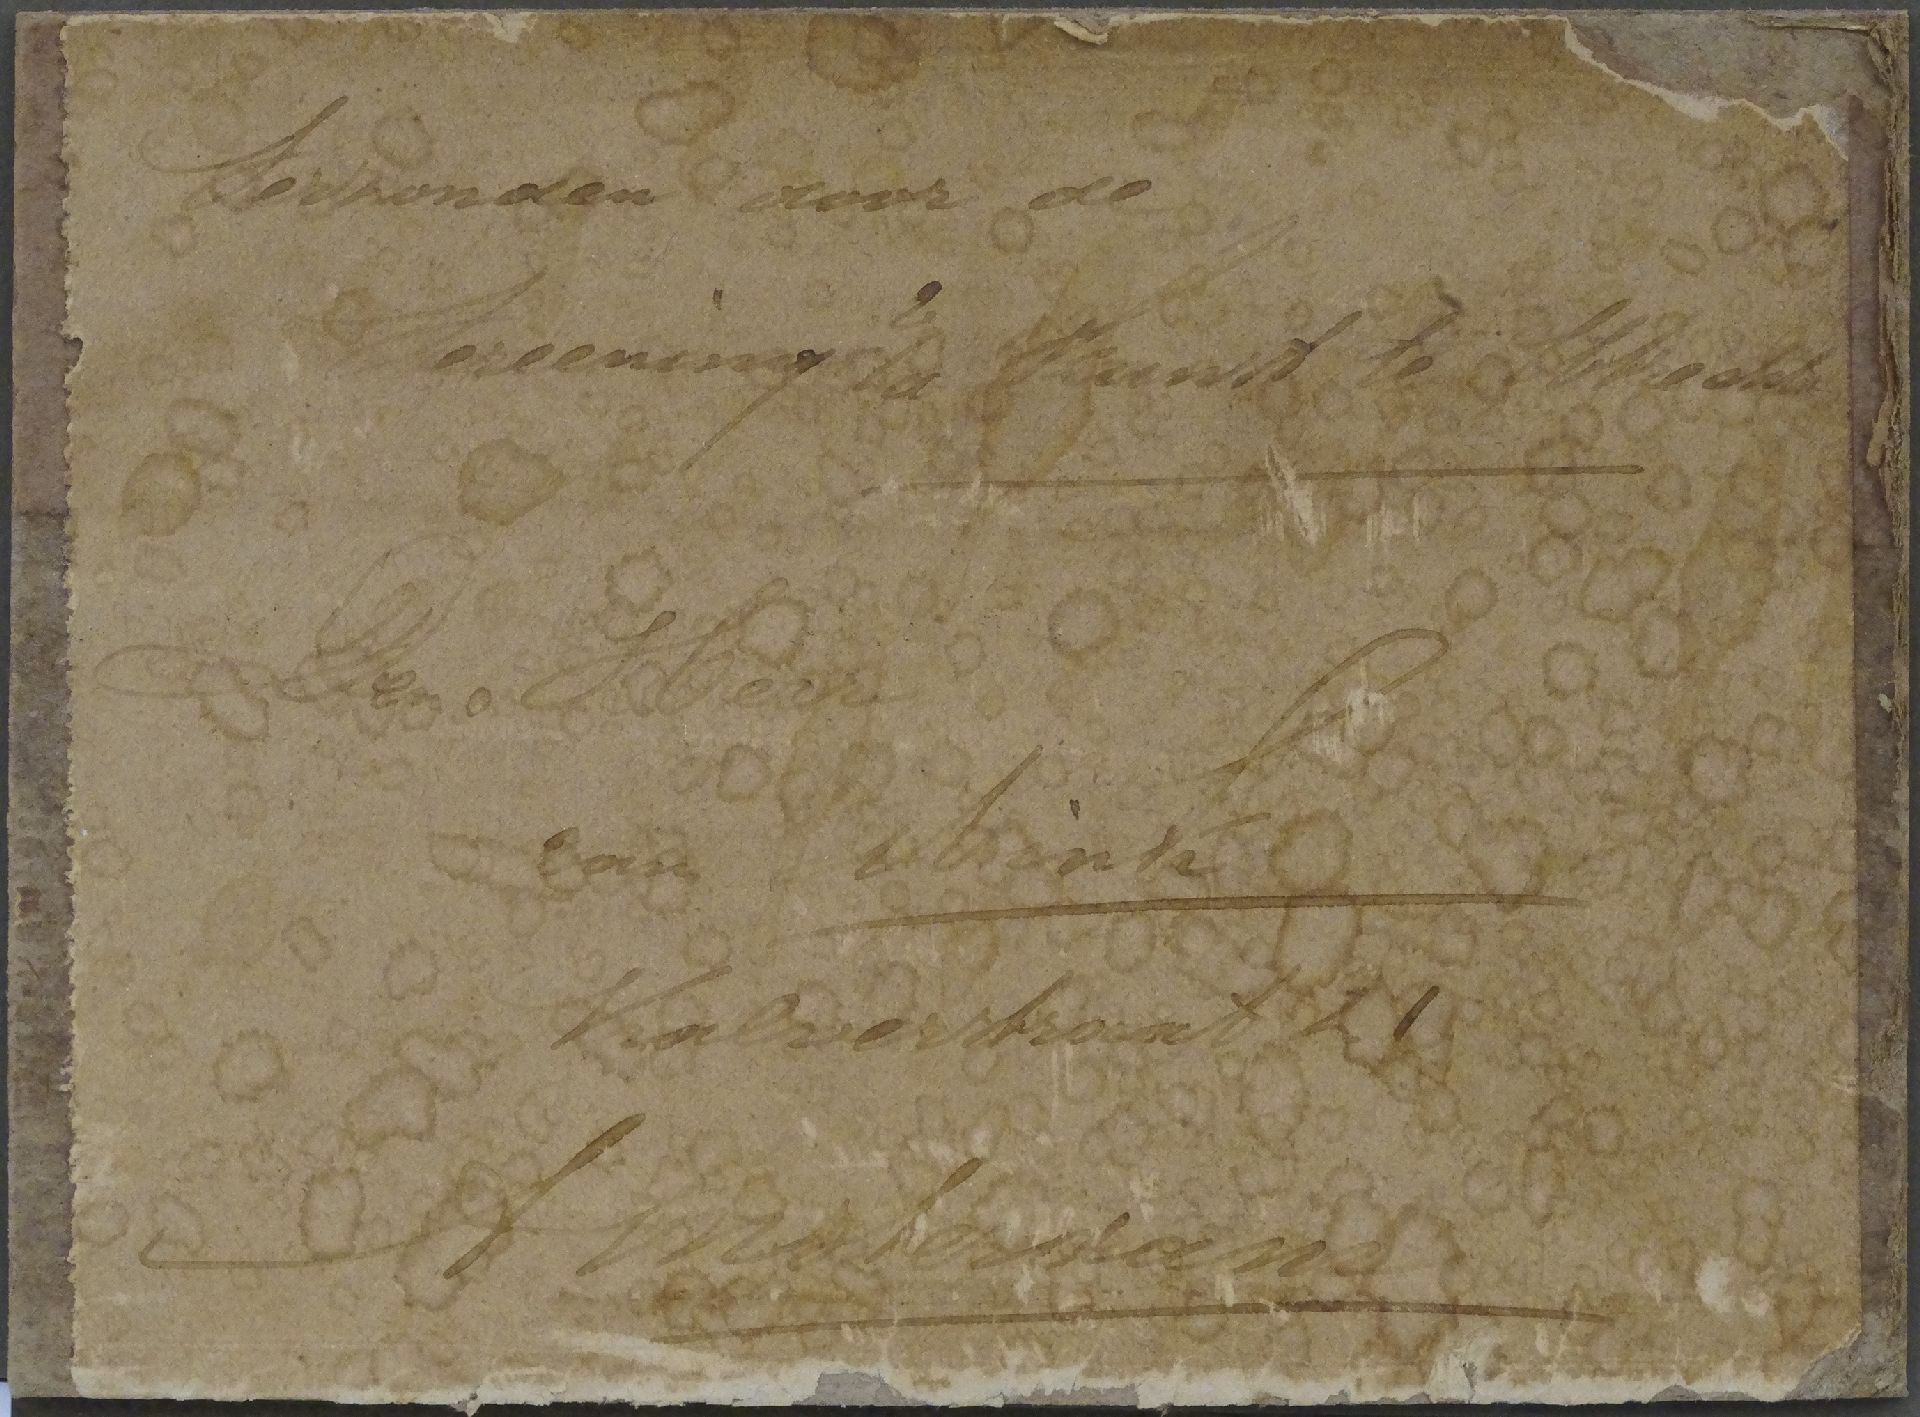 Verzonden door de
Vereening v/d Kunst te Utrecht
Den Heer
van Wink
Kalverstraat 21
Amsterdam